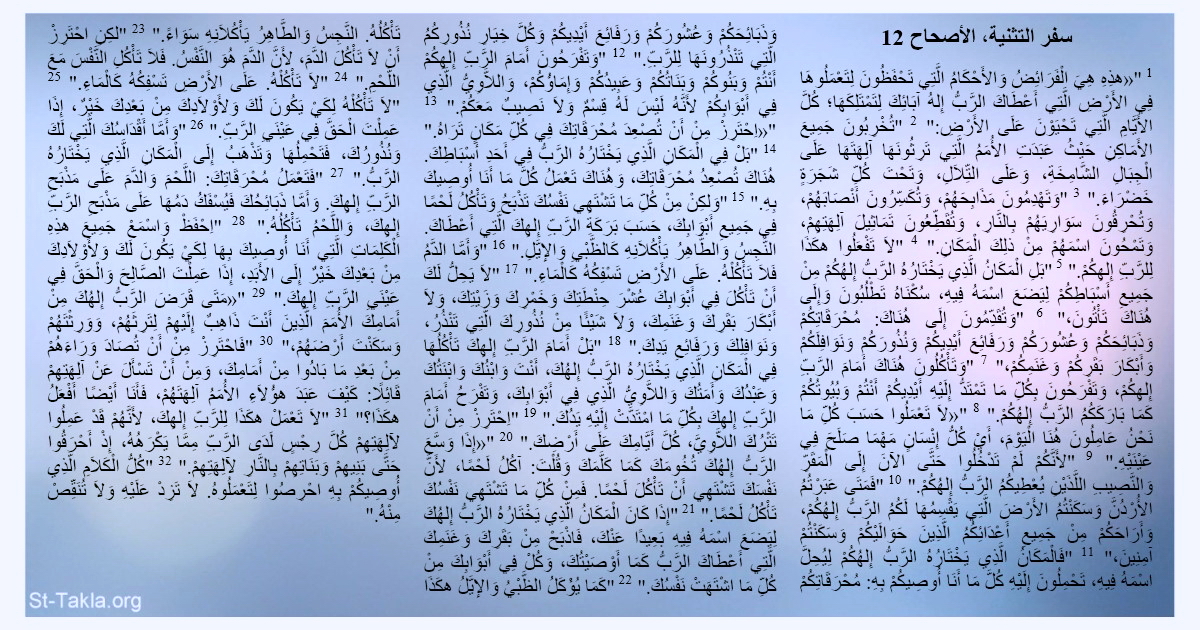 سفر التثنية، الأصحاح 12
1 "«هذِهِ هِيَ الْفَرَائِضُ وَالأَحْكَامُ الَّتِي تَحْفَظُونَ لِتَعْمَلُوهَا
فِي الأَرْضِ الَّتِي أَعْطَاكَ الرَّبُّ إِلهُ آبَائِكَ لِتَمْتَلِكَهَا؛ كُلَّ
الأَيَّامِ الَّتِي تَحْيَوْنَ عَلَى الأَرْضِ:" 2 "تُخْرِبُونَ جَمِيعَ
الأَمَاكِنِ حَيْثُ عَبَدَتِ الأُمَمُ الَّتِي تَرِثُونَهَا آلِهَتَهَا عَلَى
الْجِبَالِ الشَّامِخَةِ، وَعَلَى التِّلاَلِ، وَتَحْتَ كُلِّ شَجَرَةٍ
خَضْرَاءَ." 3 "وَتَهْدِمُونَ مَذَابِحَهُمْ، وَتُكَسِّرُونَ أَنْصَابَهُمْ،
وَتُحْرِقُونَ سَوَارِيَهُمْ بِالنَّارِ، وَتُقَطِّعُونَ تَمَاثِيلَ آلِهَتِهِمْ،
وَتَمْحُونَ اسْمَهُمْ مِنْ ذلِكَ الْمَكَانِ." 4 "لاَ تَفْعَلُوا هكَذَا
لِلرَّبِّ إِلهِكُمْ." 5 "بَلِ الْمَكَانُ الَّذِي يَخْتَارُهُ الرَّبُّ إِلهُكُمْ مِنْ
جَمِيعِ أَسْبَاطِكُمْ لِيَضَعَ اسْمَهُ فِيهِ، سُكْنَاهُ تَطْلُبُونَ وَإِلَى
هُنَاكَ تَأْتُونَ،" 6 "وَتُقَدِّمُونَ إِلَى هُنَاكَ: مُحْرَقَاتِكُمْ
وَذَبَائِحَكُمْ وَعُشُورَكُمْ وَرَفَائِعَ أَيْدِيكُمْ وَنُذُورَكُمْ وَنَوَافِلَكُمْ
وَأَبْكَارَ بَقَرِكُمْ وَغَنَمِكُمْ،" 7 "وَتَأْكُلُونَ هُنَاكَ أَمَامَ الرَّبِّ
إِلهِكُمْ، وَتَفْرَحُونَ بِكُلِّ مَا تَمْتَدُّ إِلَيْهِ أَيْدِيكُمْ أَنْتُمْ وَبُيُوتُكُمْ
كَمَا بَارَكَكُمُ الرَّبُّ إِلهُكُمْ." 8 "«لاَ تَعْمَلُوا حَسَبَ كُلِّ مَا
نَحْنُ عَامِلُونَ هُنَا الْيَوْمَ، أَيْ كُلُّ إِنْسَانٍ مَهْمَا صَلَحَ فِي
عَيْنَيْهِ." 9 "لأَنَّكُمْ لَمْ تَدْخُلُوا حَتَّى الآنَ إِلَى الْمَقَرِّ
وَالنَّصِيبِ اللَّذَيْنِ يُعْطِيكُمُ الرَّبُّ إِلهُكُمْ." 10 "فَمَتَى عَبَرْتُمُ
الأُرْدُنَّ وَسَكَنْتُمُ الأَرْضَ الَّتِي يَقْسِمُهَا لَكُمُ الرَّبُّ إِلهُكُمْ،
وَأَرَاحَكُمْ مِنْ جَمِيعِ أَعْدَائِكُمُ الَّذِينَ حَوَالَيْكُمْ وَسَكَنْتُمْ
آمِنِينَ،" 11 "فَالْمَكَانُ الَّذِي يَخْتَارُهُ الرَّبُّ إِلهُكُمْ لِيُحِلَّ
اسْمَهُ فِيهِ، تَحْمِلُونَ إِلَيْهِ كُلَّ مَا أَنَا أُوصِيكُمْ بِهِ: مُحْرَقَاتِكُمْ
وَذَبَائِحَكُمْ وَعُشُورَكُمْ وَرَفَائِعَ أَيْدِيكُمْ وَكُلَّ خِيَارِ نُذُورِكُمُ
الَّتِي تَنْذُرُونَهَا لِلرَّبِّ." 12 "وَتَفْرَحُونَ أَمَامَ الرَّبِّ إِلهِكُمْ
أَنْتُمْ وَبَنُوكُمْ وَبَنَاتُكُمْ وَعَبِيدُكُمْ وَإِمَاؤُكُمْ، وَاللاَّوِيُّ الَّذِي
فِي أَبْوَابِكُمْ لأَنَّهُ لَيْسَ لَهُ قِسْمٌ وَلاَ نَصِيبٌ مَعَكُمْ." 13
"«اِحْتَرِزْ مِنْ أَنْ تُصْعِدَ مُحْرَقَاتِكَ فِي كُلِّ مَكَانٍ تَرَاهُ."
14 "بَلْ فِي الْمَكَانِ الَّذِي يَخْتَارُهُ الرَّبُّ فِي أَحَدِ أَسْبَاطِكَ.
هُنَاكَ تُصْعِدُ مُحْرَقَاتِكَ، وَهُنَاكَ تَعْمَلُ كُلَّ مَا أَنَا أُوصِيكَ
بِهِ." 15 "وَلكِنْ مِنْ كُلِّ مَا تَشْتَهِي نَفْسُكَ تَذْبَحُ وَتَأْكُلُ لَحْمًا
فِي جَمِيعِ أَبْوَابِكَ، حَسَبَ بَرَكَةِ الرَّبِّ إِلهِكَ الَّتِي أَعْطَاكَ.
النَّجِسُ وَالطَّاهِرُ يَأْكُلاَنِهِ كَالظَّبْيِ وَالإِيَّلِ." 16 "وَأَمَّا الدَّمُ
فَلاَ تَأْكُلْهُ. عَلَى الأَرْضِ تَسْفِكُهُ كَالْمَاءِ." 17 "لاَ يَحِلُّ لَكَ
أَنْ تَأْكُلَ فِي أَبْوَابِكَ عُشْرَ حِنْطَتِكَ وَخَمْرِكَ وَزَيْتِكَ، وَلاَ
أَبْكَارَ بَقَرِكَ وَغَنَمِكَ، وَلاَ شَيْئًا مِنْ نُذُورِكَ الَّتِي تَنْذُرُ،
وَنَوَافِلِكَ وَرَفَائِعِ يَدِكَ." 18 "بَلْ أَمَامَ الرَّبِّ إِلهِكَ تَأْكُلُهَا
فِي الْمَكَانِ الَّذِي يَخْتَارُهُ الرَّبُّ إِلهُكَ، أَنْتَ وَابْنُكَ وَابْنَتُكَ
وَعَبْدُكَ وَأَمَتُكَ وَاللاَّوِيُّ الَّذِي فِي أَبْوَابِكَ، وَتَفْرَحُ أَمَامَ
الرَّبِّ إِلهِكَ بِكُلِّ مَا امْتَدَّتْ إِلَيْهِ يَدُكَ." 19 "اِحْتَرِزْ مِنْ أَنْ
تَتْرُكَ اللاَّوِيَّ، كُلَّ أَيَّامِكَ عَلَى أَرْضِكَ." 20 "«إِذَا وَسَّعَ
الرَّبُّ إِلهُكَ تُخُومَكَ كَمَا كَلَّمَكَ وَقُلْتَ: آكُلُ لَحْمًا، لأَنَّ
نَفْسَكَ تَشْتَهِي أَنْ تَأْكُلَ لَحْمًا. فَمِنْ كُلِّ مَا تَشْتَهِي نَفْسُكَ
تَأْكُلُ لَحْمًا." 21 "إِذَا كَانَ الْمَكَانُ الَّذِي يَخْتَارُهُ الرَّبُّ إِلهُكَ
لِيَضَعَ اسْمَهُ فِيهِ بَعِيدًا عَنْكَ، فَاذْبَحْ مِنْ بَقَرِكَ وَغَنَمِكَ
الَّتِي أَعْطَاكَ الرَّبُّ كَمَا أَوْصَيْتُكَ، وَكُلْ فِي أَبْوَابِكَ مِنْ
كُلِّ مَا اشْتَهَتْ نَفْسُكَ." 22 "كَمَا يُؤْكَلُ الظَّبْيُ وَالإِيَّلُ هكَذَا
تَأْكُلُهُ. النَّجِسُ وَالطَّاهِرُ يَأْكُلاَنِهِ سَوَاءً." 23 "لكِنِ احْتَرِزْ
أَنْ لاَ تَأْكُلَ الدَّمَ، لأَنَّ الدَّمَ هُوَ النَّفْسُ. فَلاَ تَأْكُلِ النَّفْسَ مَعَ
اللَّحْمِ." 24 "لاَ تَأْكُلْهُ. عَلَى الأَرْضِ تَسْفِكُهُ كَالْمَاءِ." 25
"لاَ تَأْكُلْهُ لِكَيْ يَكُونَ لَكَ وَلأَوْلاَدِكَ مِنْ بَعْدِكَ خَيْرٌ، إِذَا
عَمِلْتَ الْحَقَّ فِي عَيْنَيِ الرَّبِّ." 26 "وَأَمَّا أَقْدَاسُكَ الَّتِي لَكَ
وَنُذُورُكَ، فَتَحْمِلُهَا وَتَذْهَبُ إِلَى الْمَكَانِ الَّذِي يَخْتَارُهُ
الرَّبُّ." 27 "فَتَعْمَلُ مُحْرَقَاتِكَ: اللَّحْمَ وَالدَّمَ عَلَى مَذْبَحِ
الرَّبِّ إِلهِكَ. وَأَمَّا ذَبَائِحُكَ فَيُسْفَكُ دَمُهَا عَلَى مَذْبَحِ الرَّبِّ
إِلهِكَ، وَاللَّحْمُ تَأْكُلُهُ." 28 "اِحْفَظْ وَاسْمَعْ جَمِيعَ هذِهِ
الْكَلِمَاتِ الَّتِي أَنَا أُوصِيكَ بِهَا لِكَيْ يَكُونَ لَكَ وَلأَوْلاَدِكَ
مِنْ بَعْدِكَ خَيْرٌ إِلَى الأَبَدِ، إِذَا عَمِلْتَ الصَّالِحَ وَالْحَقَّ فِي
عَيْنَيِ الرَّبِّ إِلهِكَ." 29 "«مَتَى قَرَضَ الرَّبُّ إِلهُكَ مِنْ
أَمَامِكَ الأُمَمَ الَّذِينَ أَنْتَ ذَاهِبٌ إِلَيْهِمْ لِتَرِثَهُمْ، وَوَرِثْتَهُمْ
وَسَكَنْتَ أَرْضَهُمْ،" 30 "فَاحْتَرِزْ مِنْ أَنْ تُصَادَ وَرَاءَهُمْ
مِنْ بَعْدِ مَا بَادُوا مِنْ أَمَامِكَ، وَمِنْ أَنْ تَسْأَلَ عَنْ آلِهَتِهِمْ
قَائِلاً: كَيْفَ عَبَدَ هؤُلاَءِ الأُمَمُ آلِهَتَهُمْ، فَأَنَا أَيْضًا أَفْعَلُ
هكَذَا؟" 31 "لاَ تَعْمَلْ هكَذَا لِلرَّبِّ إِلهِكَ، لأَنَّهُمْ قَدْ عَمِلُوا
لآلِهَتِهِمْ كُلَّ رِجْسٍ لَدَى الرَّبِّ مِمَّا يَكْرَهُهُ، إِذْ أَحْرَقُوا
حَتَّى بَنِيهِمْ وَبَنَاتِهِمْ بِالنَّارِ لآلِهَتِهِمْ." 32 "كُلُّ الْكَلاَمِ الَّذِي
أُوصِيكُمْ بِهِ احْرِصُوا لِتَعْمَلُوهُ. لاَ تَزِدْ عَلَيْهِ وَلاَ تُنَقِّصْ
مِنْهُ."
St-Takla.org